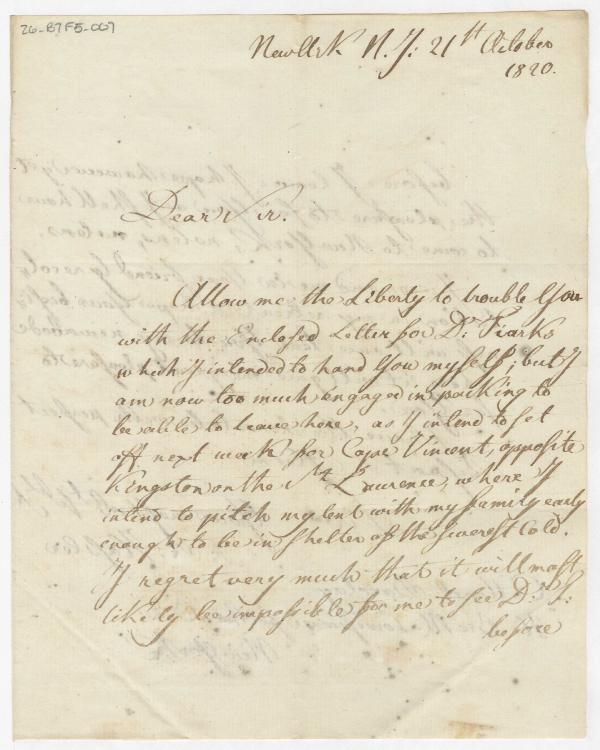 26-B7F5-007
NewArk N. J: 21st October
1820.
Dear Sir.
Allow me the Liberty to trouble You
with the Enclosed Letter for Dr:
which I intended to hand You myself; but I
am now too much engaged in packing to
be able to Leave here, as I intend to set
off next week for Cape Vincent, opposite
Kingston on the St Lawrence, where I
intend to pitch my tent with my family early
enough to be in Shelter of the severest Cold.
I regret very much that it will most
likely be impossible for me to see Dr:
before